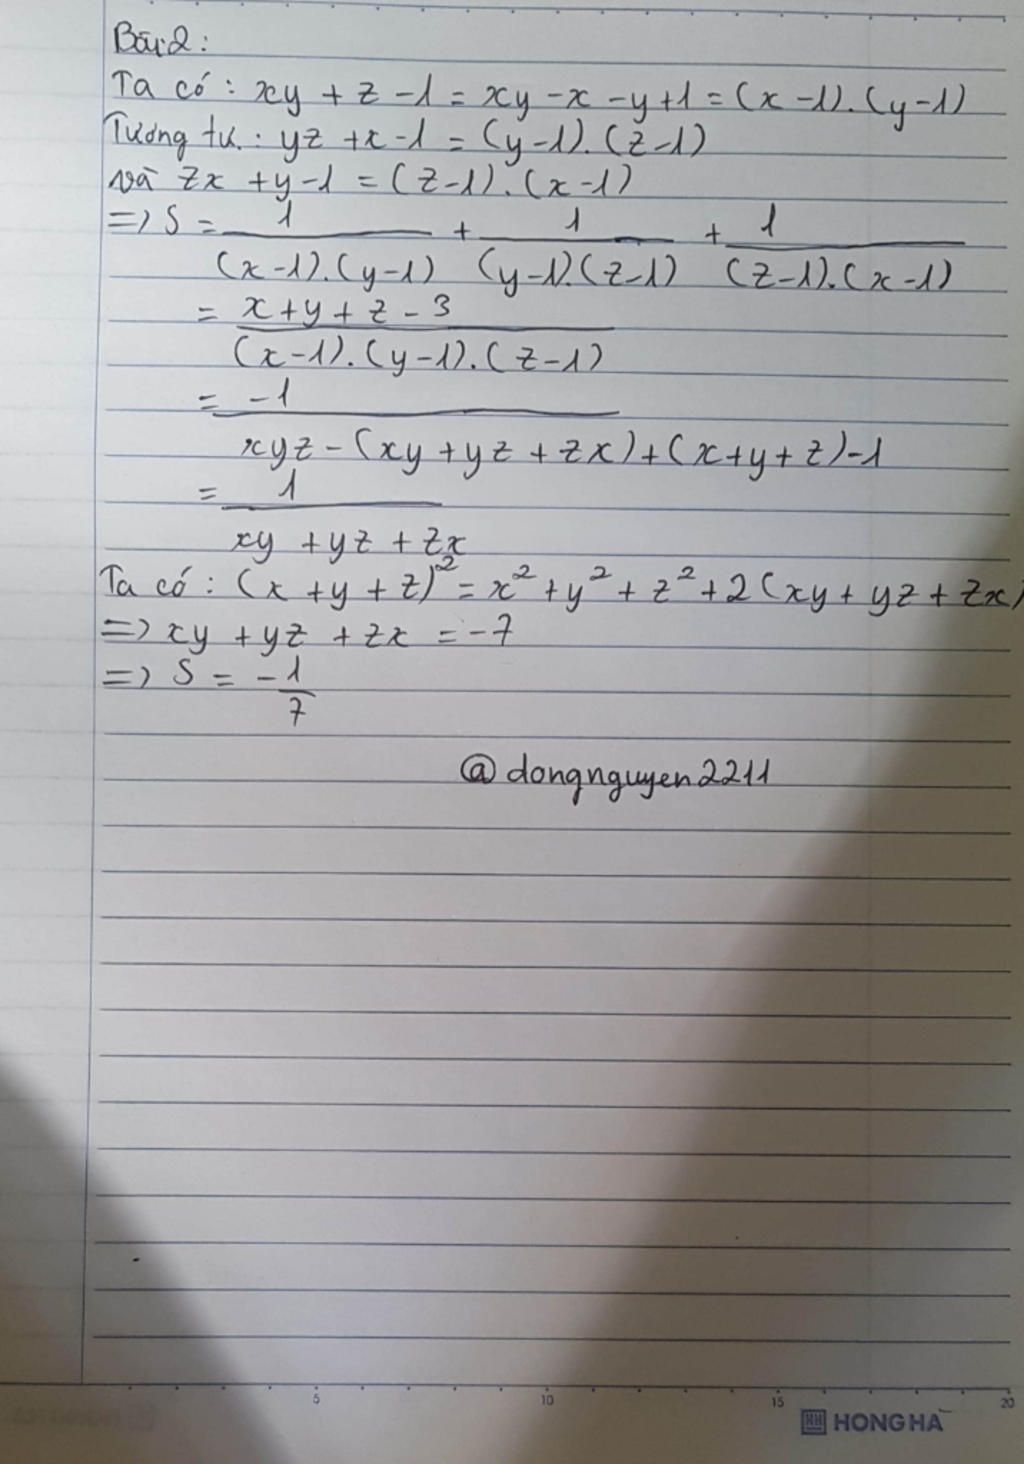 Bài 2:
Ta có: xy + z - 1 = xy - x - y + 1 = (x - 1).(y - 1)
Tương tự: yz + x - 1 = (y - 1).(z - 1)
và zx + y - 1 = (z - 1).(x - 1)
=> S = 1/((x - 1).(y - 1)) + 1/((y - 1).(z - 1)) + 1/((z - 1).(x - 1))
= (x + y + z - 3)/((x - 1).(y - 1).(z - 1))
= -1/(xyz - (xy + yz + zx) + (x + y + z) - 1)
= 1/(xy + yz + zx)
Ta có: (x + y + z)² = x² + y² + z² + 2(xy + yz + zx)
=> xy + yz + zx = -7
=> S = -1/7
@dongnguyen2211
5 10 15 20
HH HONG HA